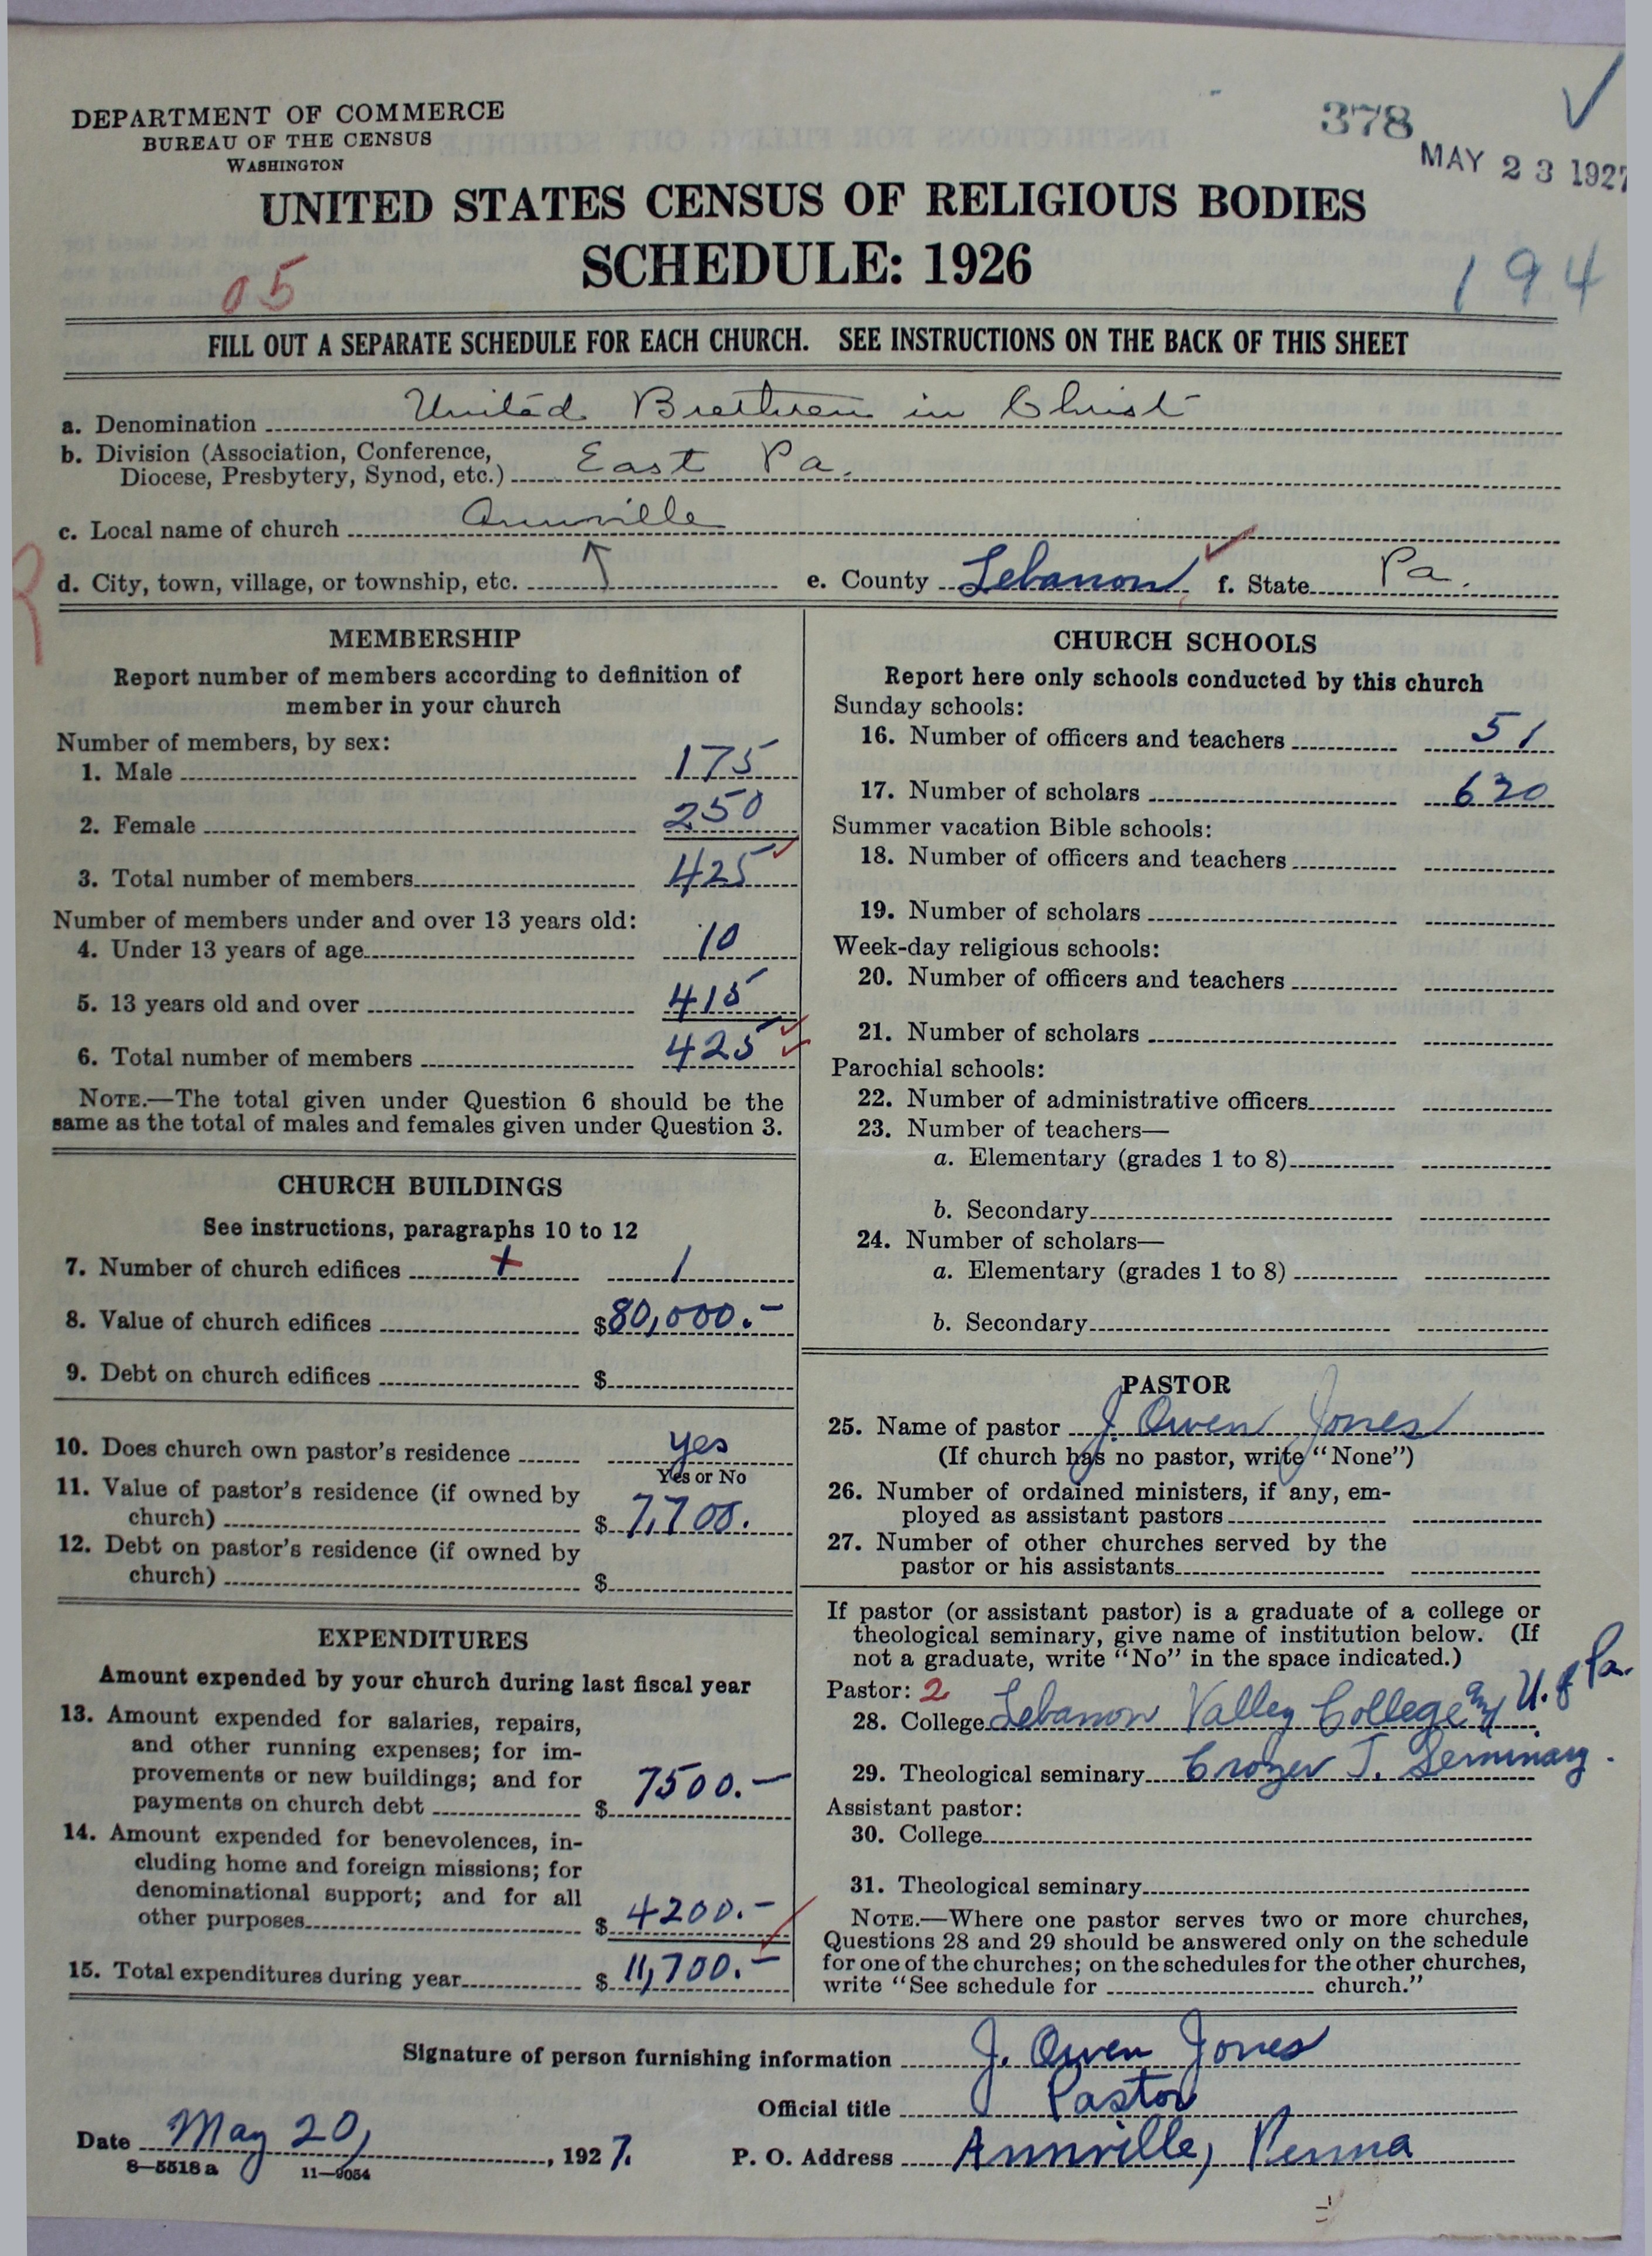 DEPARTMENT OF COMMERCE
BUREAU OF THE CENSUS
WASHINGTON
378
MAY 23 1927
UNITED STATES CENSUS OF RELIGIOUS BODIES
SCHEDULE: 1926
05
194
FILL OUT A SEPARATE SCHEDULE FOR EACH CHURCH. SEE INSTRUCTIONS ON THE BACK OF THIS SHEET
a. Denomination United Brethren in Christ
b. Division (Association, Conference,
Diocese, Presbytery, Synod, etc.) East Pa.
c. Local name of church Annville
d. City, town, village, or township, etc. e. County Lebanon f. State Pa.
MEMBERSHIP
Report number of members according to definition of
member in your church
Number of members, by sex:
1. Male 175
2. Female 250
3. Total number of members 425
Number of members under and over 13 years old:
4. Under 13 years of age 10
5. 13 years old and over 415
6. Total number of members 425
NOTE.—The total given under Question 6 should be the
same as the total of males and females given under Question 3.
CHURCH BUILDINGS
See instructions, paragraphs 10 to 12
7. Number of church edifices 1
8. Value of church edifices $80,000.-
9. Debt on church edifices $
10. Does church own pastor's residence yes
Yes or No
11. Value of pastor's residence (if owned by
church) $ 7,700.
12. Debt on pastor's residence (if owned by
church) $
EXPENDITURES
Amount expended by your church during last fiscal year
13. Amount expended for salaries, repairs,
and other running expenses; for im-
provements or new buildings; and for
payments on church debt $ 7500.-
14. Amount expended for benevolences, in-
cluding home and foreign missions; for
denominational support; and for all
other purposes $ 4200.-
15. Total expenditures during year $ 11,700.-
CHURCH SCHOOLS
Report here only schools conducted by this church
Sunday schools:
16. Number of officers and teachers 51
17. Number of scholars 620
Summer vacation Bible schools:
18. Number of officers and teachers
19. Number of scholars
Week-day religious schools:
20. Number of officers and teachers
21. Number of scholars
Parochial schools:
22. Number of administrative officers
23. Number of teachers—
a. Elementary (grades 1 to 8)
b. Secondary
24. Number of scholars—
a. Elementary (grades 1 to 8)
b. Secondary
PASTOR
25. Name of pastor J. Owen Jones
(If church has no pastor, write "None")
26. Number of ordained ministers, if any, em-
ployed as assistant pastors
27. Number of other churches served by the
pastor or his assistants
If pastor (or assistant pastor) is a graduate of a college or
theological seminary, give name of institution below. (If
not a graduate, write "No" in the space indicated.)
Pastor: 2
28. College Lebanon Valley College and U. of Pa.
29. Theological seminary Crozer T. Seminary.
Assistant pastor:
30. College
31. Theological seminary
NOTE.—Where one pastor serves two or more churches,
Questions 28 and 29 should be answered only on the schedule
for one of the churches; on the schedules for the other churches,
write "See schedule for church."
Signature of person furnishing information J. Owen Jones
Official title Pastor
Date May 20, 1927. P. O. Address Annville, Penna
8—5518a 11—9054